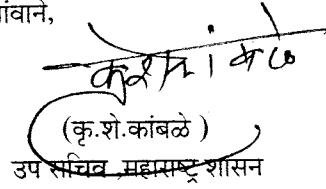 ांवाने,
(कृ.शे.कांबळे )
उप सचिव ,महाराष्ट्र शासन